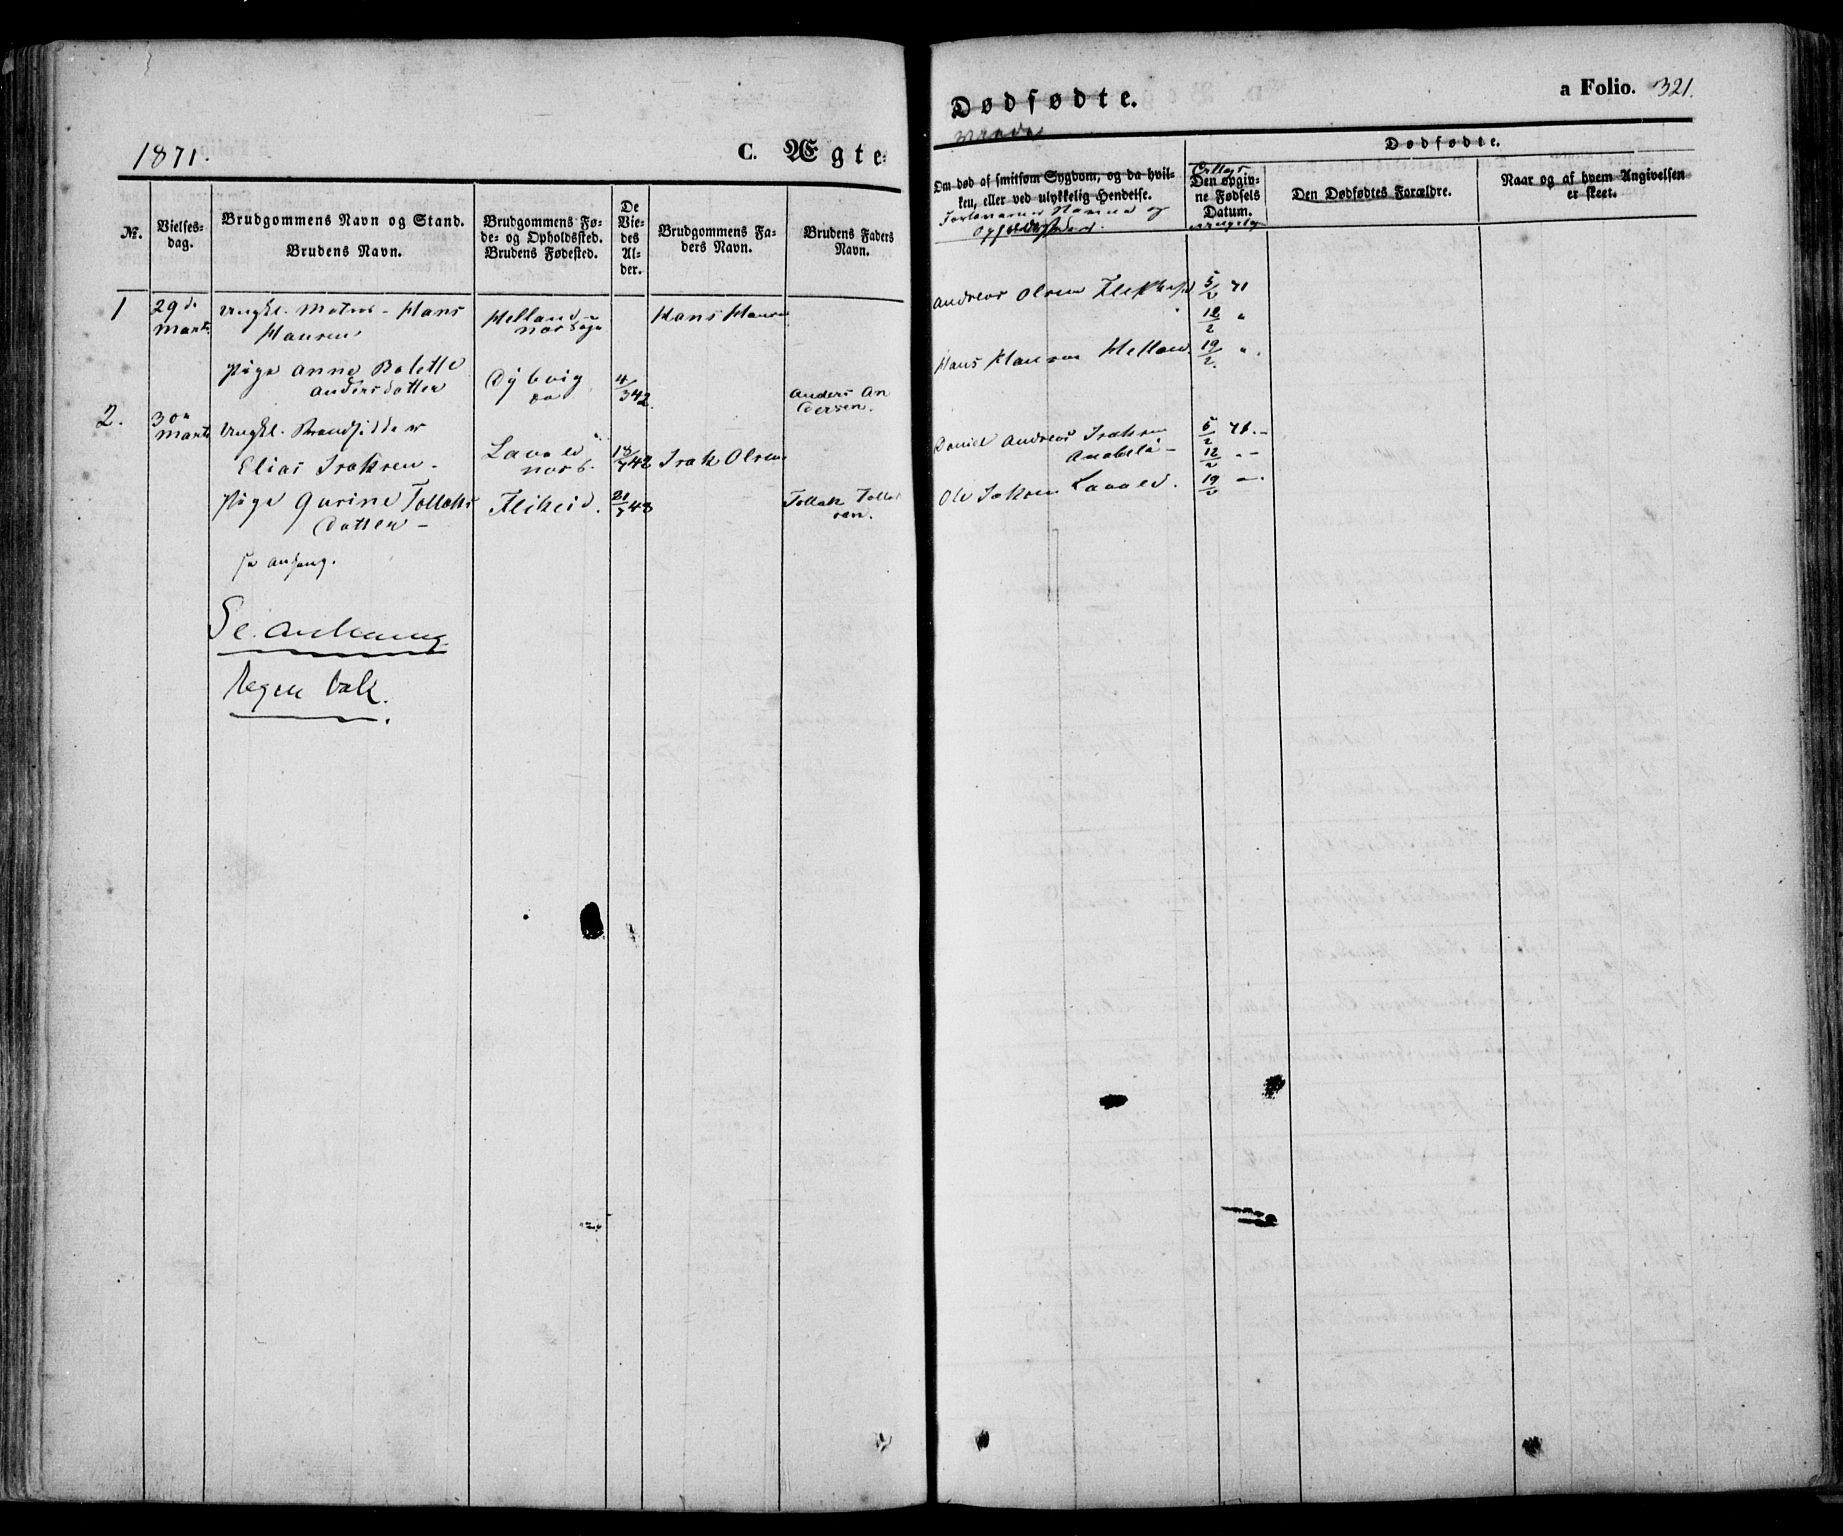 1871.
C. Ægte-
№.
Vielses-
dag.
Brudgommens Navn og Stand.
Brudens Navn.
Brudgommens Fø-
de- og Opholdssted.
Brudens Fødested.
De
Vie-
des
Al-
der.
Brudgommens Fa-
ders Navn.
Brudens Faders
Navn.
1
29de
Marts
Ungkl. Matros - Hans
Hansen
Helland
Hans Hansen
Pige Anne Bolette
Andersdatter
Dybvig
4/3 42.
Anders An
dersen.
2.
30te
Marts
Ungkl.
Elias Isaksen -
Lavold
13/7 42
Isak Olsen
Pige Gurine Tollaks
Datter -
Flikeid.
21/7 48
Tollak Tollak
sen.
Se.
bak.
Dødfødte.
a Folio. 321.
Om død af smitsom Sygdom, og da hvil-
ken, eller ved ulykkelig Hendelse.
Forlovernes Navne og
Opholdssted.
Dødfødte.
Den opgiv-
ne Fødsels
Datum.
Den Dødfødtes Forældre.
Naar og af hvem Angivelsen
er skeet.
Andreas Olsen Flekkefjd
5/2 71
12/2 "
Hans Hansen Helland.
19/2. ".
Daniel Andreas Isaksen
Anabeløe -
5/2 71. -
12/2 " -
Ole Isaksen Lavold.
19/2 ".